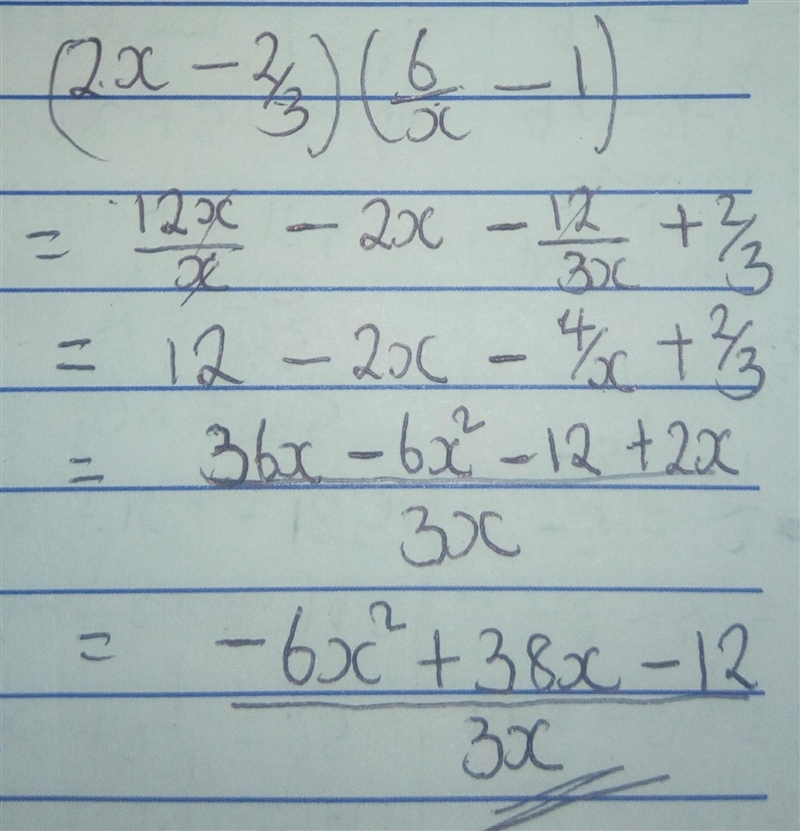 (2x - 2/3)(6/x - 1)
= 12x/x - 2x - 12/3x + 2/3
= 12 - 2x - 4/x + 2/3
= 36x - 6x² - 12 + 2x / 3x
= -6x² + 38x - 12 / 3x